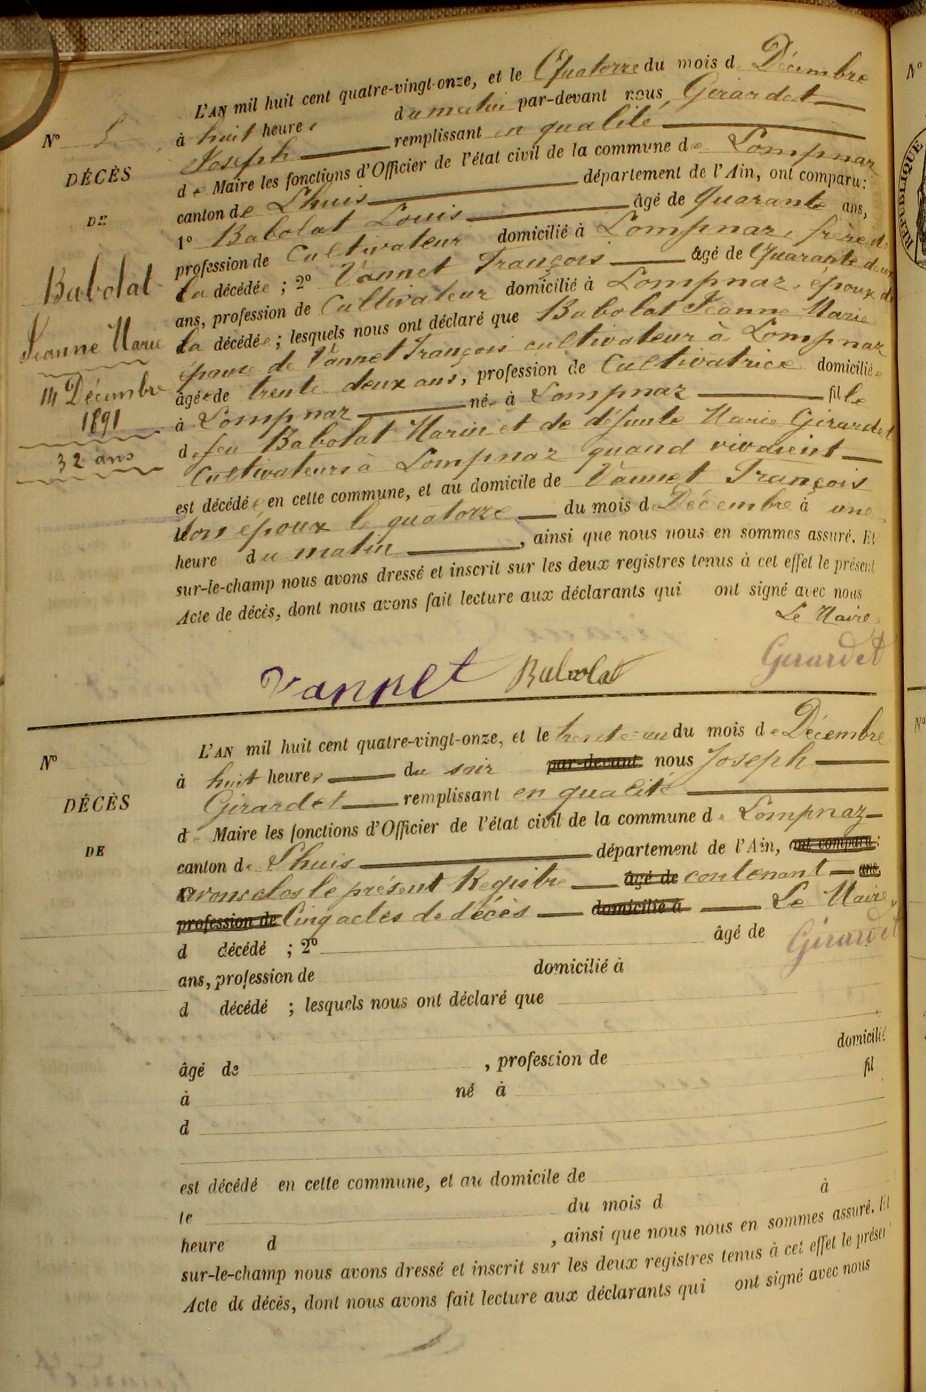 L'AN mil huit cent quatre-vingt-onze, et le Quatorze du mois de Décembre
à huit heures du matin par-devant nous Girardet
Joseph remplissant en qualité
de Maire les fonctions d'Officier de l'état civil de la commune de Lompnaz
canton de Lhuis département de l'Ain, ont comparu:
1º Babolat Louis âgé de Quarante ans,
profession de Cultivateur domicilié à Lompnaz, frère de
la décédée ; 2º Vannet François âgé de Quarante deux
ans, profession de Cultivateur domicilié à Lompnaz, époux de
la décédée ; lesquels nous ont déclaré que Babolat Jeanne Marie
épouse de Vannet François cultivateur à Lompnaz
âgée de trente deux ans, profession de Cultivatrice domiciliée
à Lompnaz née à Lompnaz fille
de feu Babolat Marin et de défunte Marie Girardet
Cultivateurs à Lompnaz quand vivaient
est décédée en cette commune, et au domicile de Vannet François
son époux le quatorze du mois de Décembre à une
heure du matin, ainsi que nous nous en sommes assuré. Et
sur-le-champ nous avons dressé et inscrit sur les deux registres tenus à cet effet le présent
Acte de décès, dont nous avons fait lecture aux déclarants qui ont signé avec nous
Le Maire
Girardet
Vannet Babolat
Nº 5
DÉCÈS
DE
Babolat
Jeanne Marie
14 Décembre
1891
32 ans
Nº
DÉCÈS
DE
L'AN mil huit cent quatre-vingt-onze, et le trente-un du mois de Décembre
à huit heures du soir par-devant nous Joseph
Girardet remplissant en qualité
de Maire les fonctions d'Officier de l'état civil de la commune de Lompnaz
canton de Lhuis département de l'Ain, ont comparu:
avons clos le présent Registre âgé de contenant ans,
profession de Cinq actes de décès domicilié à Le Maire
Girardet
d décédé ; 2º âgé de
ans, profession de domicilié à
d décédé ; lesquels nous ont déclaré que
âgé de , profession de domicilié
à né à fil
d
est décédé en cette commune, et au domicile de
le du mois d à
heure d , ainsi que nous nous en sommes assuré. Et
sur-le-champ nous avons dressé et inscrit sur les deux registres tenus à cet effet le présent
Acte de décès, dont nous avons fait lecture aux déclarants qui ont signé avec nous
Nº
RÉPUBLIQUE
Nº